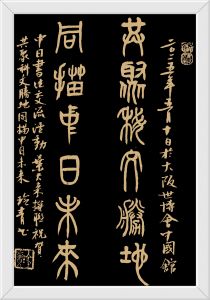 二〇二五年五月十日於大阪世博會中國館
共聚科文勝地
同描中日未來
中日書道交流活動 撰聯祝賀
共聚科文勝地同描中日未來